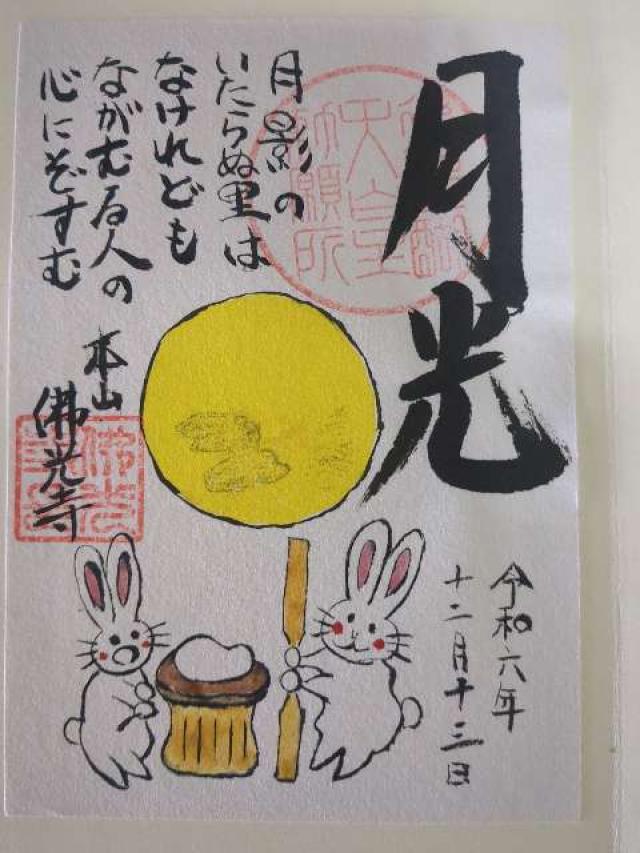 月光
月影の
いたらぬ里は
なけれども
ながむる人の
心にぞすむ
本山
佛光寺
令和六年
十二月十三日